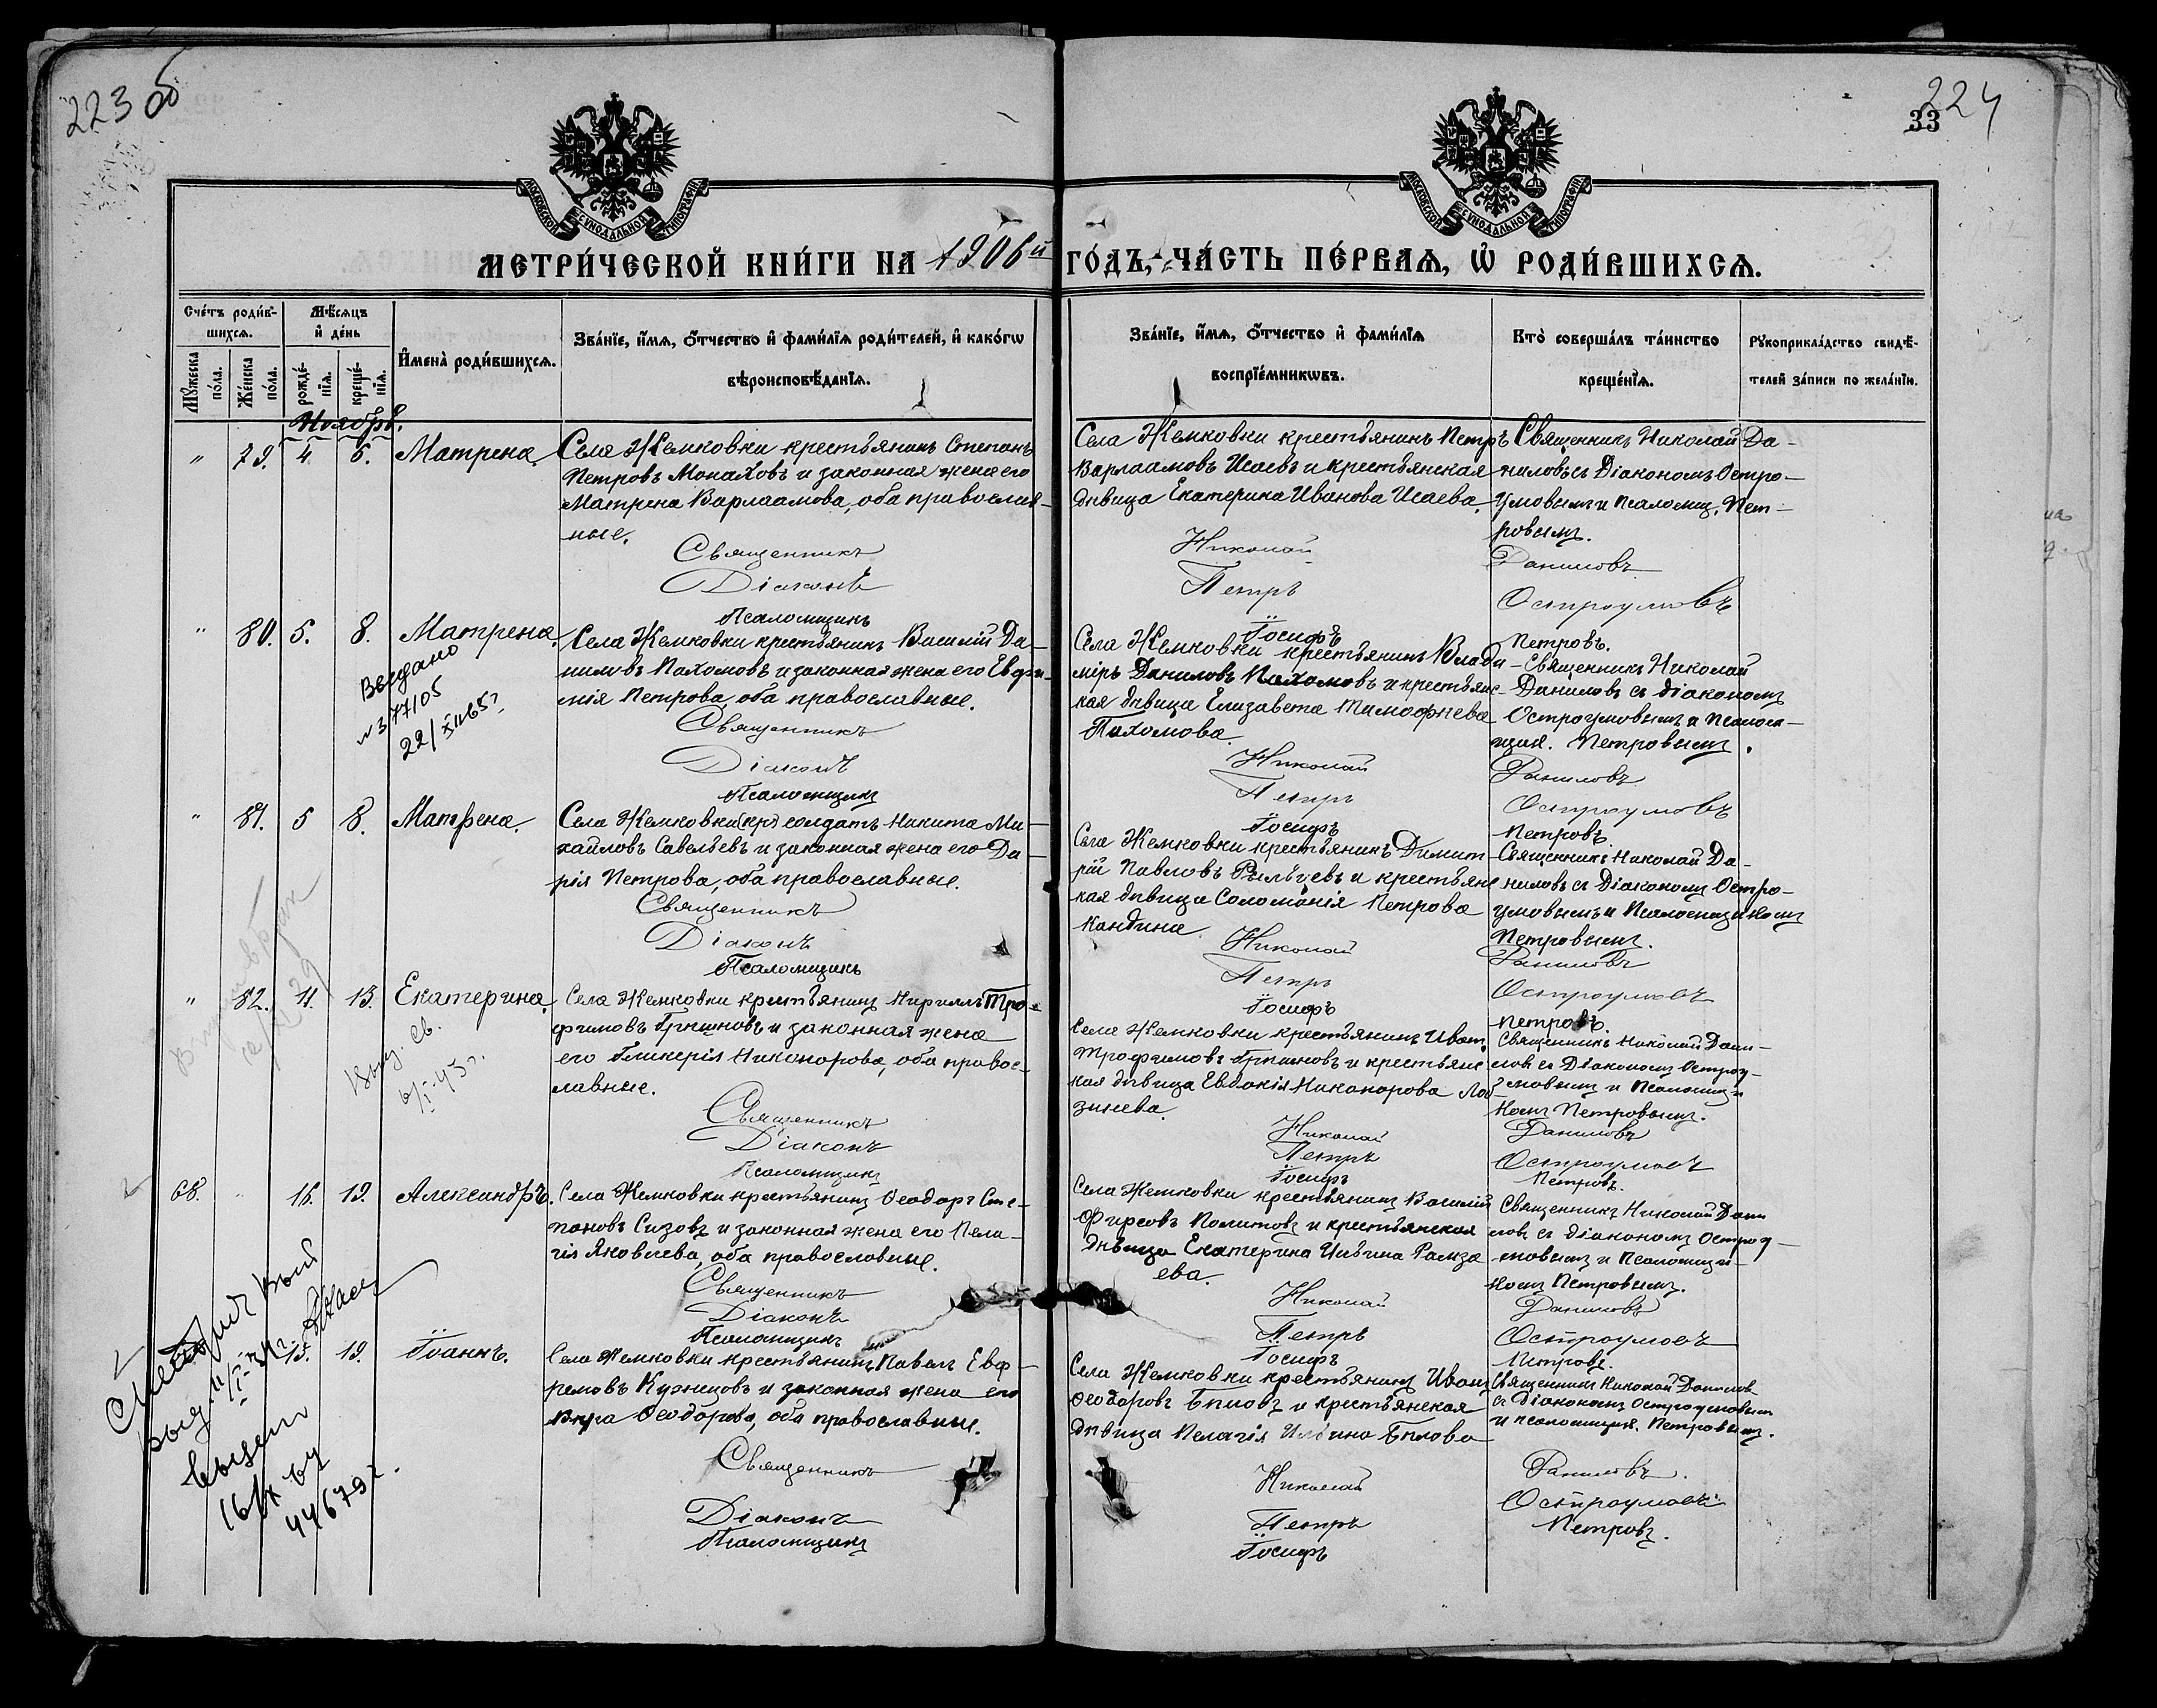 223 об
224
33
МОСКОВСКОЙ СѴНОДАЛЬНОЙ ТИПОГРАФІИ
МОСКОВСКОЙ СѴНОДАЛЬНОЙ ТИПОГРАФІИ
МЕТРИ́ЧЕСКОЙ КНИ́ГИ НА 1906й ГО́ДЪ, ЧА́СТЬ ПЕ́РВАѦ, Ѡ҆ РОДИ́ВШИХСѦ.
Сче́тъ роди́в-
шихсѧ.
Мꙋ́жеска по́ла.
Же́нска по́ла.
Мѣ́сѧцъ
и҆ де́нь
рожде́-
нїѧ.
креще́-
нїѧ.
И҆мена̀ роди́вшихсѧ.
Зва́нїе, и҆́мѧ, ѻ҆́тчество и҆ фами́лїѧ роди́телей, и҆ како́гѡ
вѣроисповѣ́данїѧ.
Зва́нїе, и҆́мѧ, ѻ҆́тчество и҆ фами́лїѧ
воспрїе́мникѡвъ.
Кто̀ соверша́лъ та́инство
креще́нїѧ.
Рꙋкоприкла́дство свидѣ́-
телей за́писи по жела́нїи.
Ноябрь.
" 79. 4 5. Матрена.
Села Жемковки крестьянинъ Степанъ
Петровъ Монаховъ и законная жена его
Матрена Варлаамова, оба православ-
ные.
Священникъ
Діаконъ
Псаломщикъ
Села Жемковки крестьянинъ Петръ
Варлаамовъ Исаевъ и крестьянская
дѣвица Екатерина Иванова Исаева.
Николай
Петръ
Іосифъ
Священникъ Николай Да-
ниловъ съ Діакономъ Остро-
умовымъ и Псаломщ. Пет-
ровымъ.
Даниловъ
Остроумовъ
Петровъ.
" 80. 5. 8. Матрена.
Выдано
№ 377105
22/XII 65 г.
Села Жемковки крестьянинъ Василій Да-
ниловъ Пахомовъ и законная жена его Евфи-
мія Петрова, оба православные.
Священникъ
Діаконъ
Псаломщикъ
Села Жемковки крестьянинъ Влади-
міръ Даниловъ Пахомовъ и крестьянс-
кая дѣвица Елизавета Тимофѣева
Пахомова.
Николай
Петръ
Іосифъ
Священникъ Николай
Даниловъ съ діакономъ
Остроумовымъ и Псалом-
щик. Петровымъ.
Даниловъ
Остроумовъ
Петровъ
" 81. 5 8. Матрена.
Села Жемковки (кр) солдатъ Никита Ми-
хайловъ Савельевъ и законная жена его Да-
рія Петрова, оба православные.
Священникъ
Діаконъ
Псаломщикъ
Села Жемковки крестьянинъ Димит-
рій Павловъ Рыльцевъ и крестьянс
кая дѣвица Соломонія Петрова
Кандина
Николай
Петръ
Іосифъ
Священникъ Николай Да-
ниловъ съ Діакономъ Остро-
умовымъ и Псаломщикомъ
Петровымъ.
Даниловъ
Остроумовъ
Петровъ.
" 82. 11. 13. Екатерина.
Выд. св.
6/I-45 г.
Села Жемковки крестьянинъ Кириллъ Тро-
фимовъ Гришновъ и законная жена
его Гликерія Никонорова, оба правос-
лавные.
Священникъ
Діаконъ
Псаломщикъ
Села Жемковки крестьянинъ Иванъ
Трофимовъ Гришновъ и крестьянс
кая дѣвица Евдокія Никанорова Ло
зинева.
Николай
Петръ
Іосифъ
Священникъ Николай Дани-
ловъ съ Діакономъ Остроу-
мовымъ и Псаломщи
комъ Петровымъ.
Даниловъ
Остроумовъ
Петровъ.
68. " 16. 19. Александръ.
Села Жемковки крестьянинъ Ѳеодоръ Сте-
пановъ Сизовъ и законная жена его Пела-
гія Яковлева, оба православные.
Священникъ
Діаконъ
Псаломщикъ
Села Жемковки крестьянинъ Василій
Фирсовъ Политовъ и крестьянская
дѣвица Екатерина Ильина Рамза
ева.
Николай
Петръ
Іосифъ
Священникъ Николай Дани
ловъ съ діакономъ Остроу-
мовымъ и Псаломщи-
комъ Петровымъ.
Даниловъ
Остроумовъ
Петровъ.
15. 19. Іоаннъ.
16/IX
44679
Села Жемковки крестьянинъ Павелъ Евф-
ремовъ Кузнецовъ и законная жена его
Вѣра Ѳеодорова, оба православные.
Священникъ
Діаконъ
Псаломщикъ
Села Жемковки крестьянинъ Иванъ
Ѳеодоровъ Бѣловъ и крестьянская
дѣвица Пелагія Ильина Бѣлова
Николай
Петръ
Іосифъ
Священникъ Николай Данилов
съ Діакономъ Остроумовым
и псаломщик. Петровымъ.
Даниловъ.
Остроумовъ.
Петровъ.